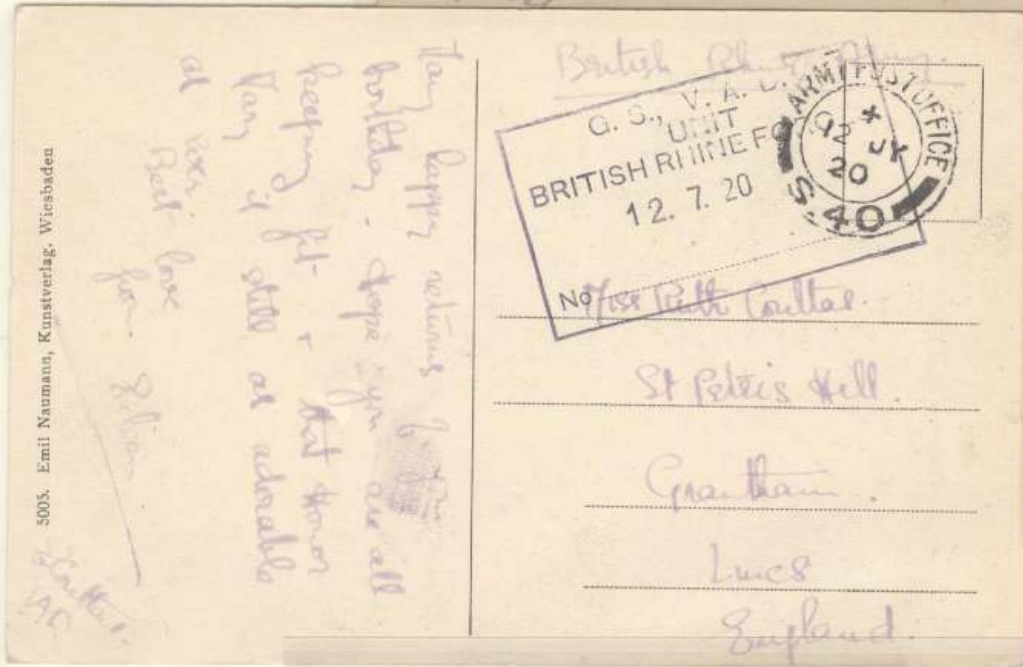 5005. Emil Naumann, Kunstverlag. Wiesbaden
Many happy returns for your
birthday - Hope you are all
keeping fit - + that Honor
Mary is still as adorable
as ever.
Best love
from
British Rhine Army.
G. S., V. A. D.
UNIT
BRITISH RHINE FO
12. 7. 20
No
ARMY POST OFFICE
12 JY
20
S.40
Miss Ruth Coultas.
St Peters Hill.
Grantham.
Lincs
England.